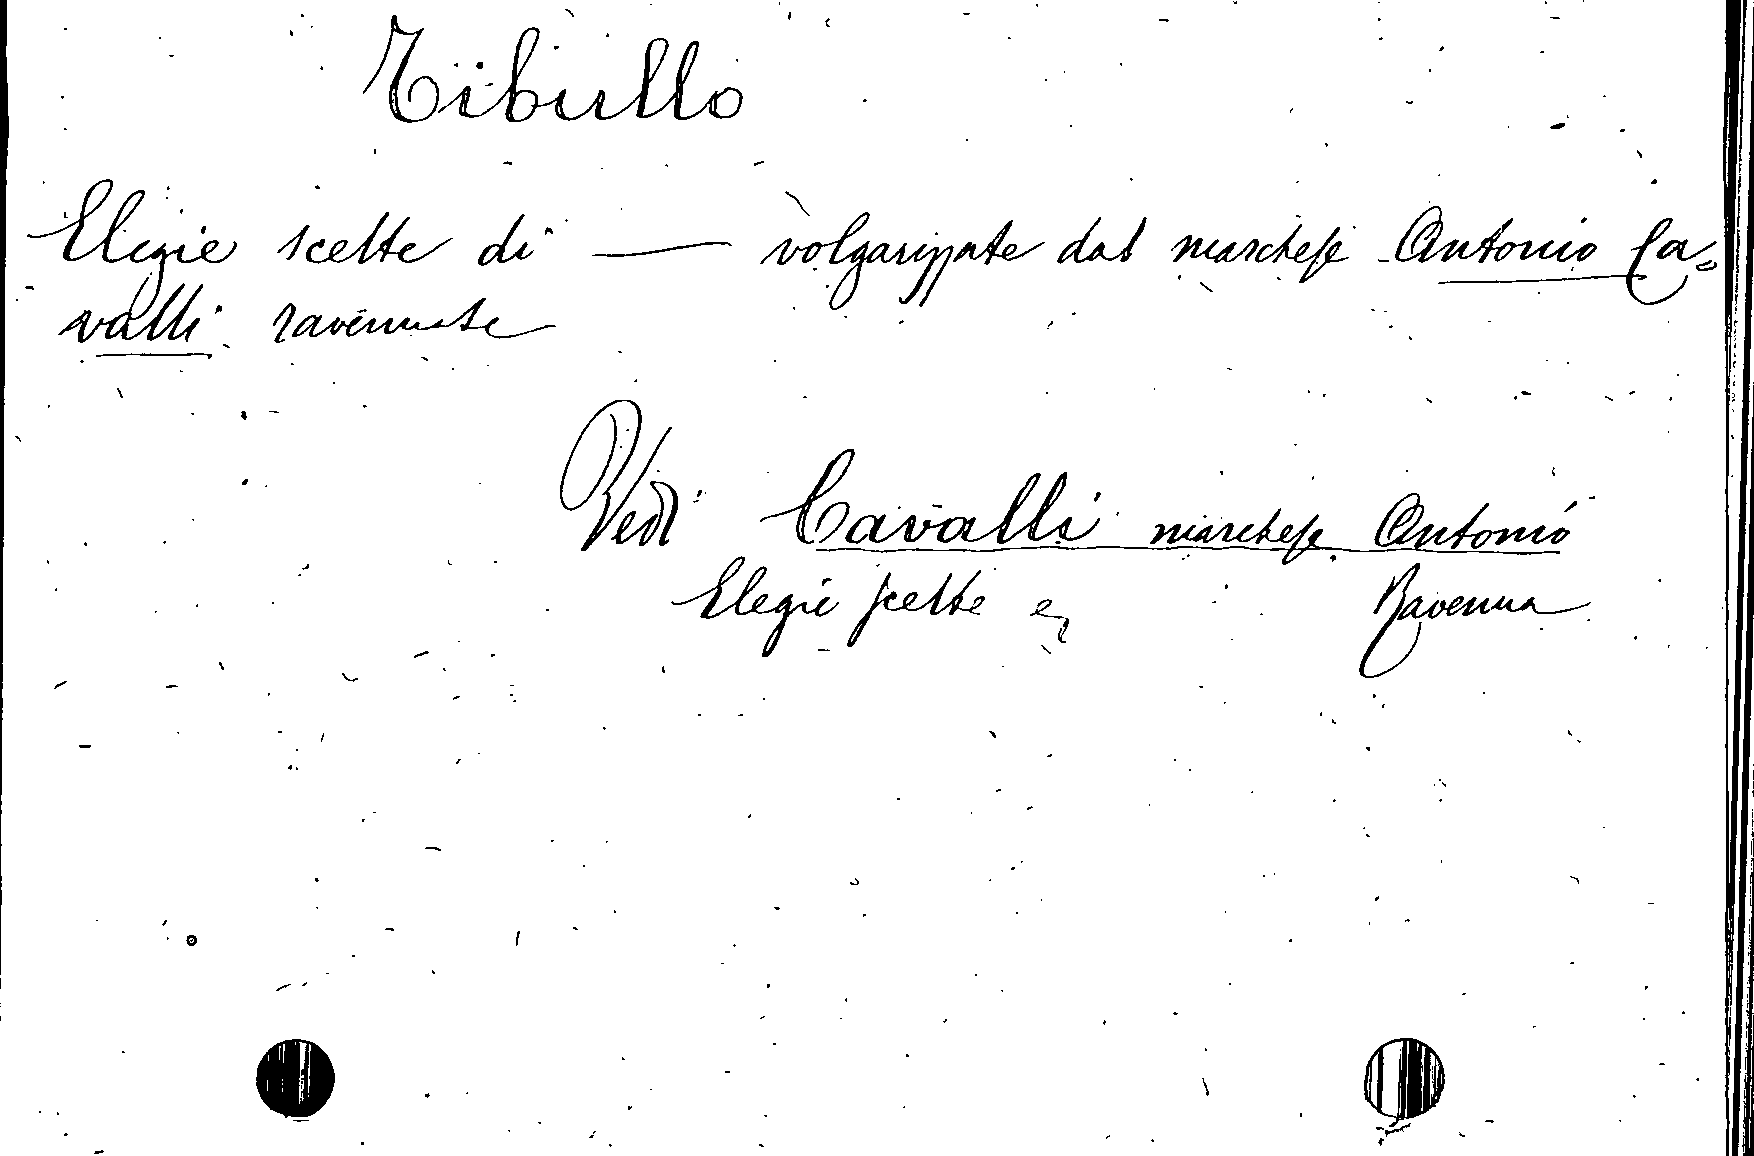 Tibullo
Elegie scelte di — volgarizzate dal marchese Antonio Ca=
valli ravennate
Vedi Cavalli marchese Antonio
Elegie scelte Ravenna